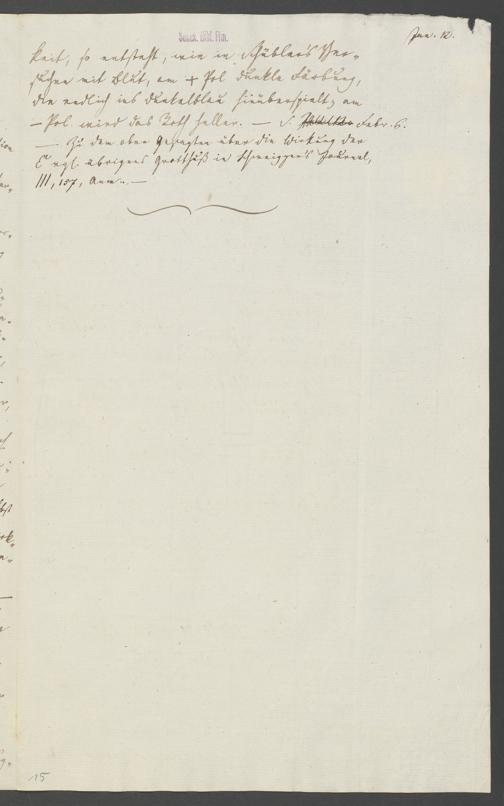 Jan. 12.
keit, so entsteht, wie in Schübler's Ver-
suchen mit Blut, am + Pol dunkle Färbung,
die endlich ins Dunkelblau hinüberspielt; am
– Pol wird das Roth heller. — S. Febr. 6.
—. Zu dem oben Gesagten über die Wirkung der
vgl. übrigens Grotthuß in Schweigger's Journal,
III, 157, Anm. —
15